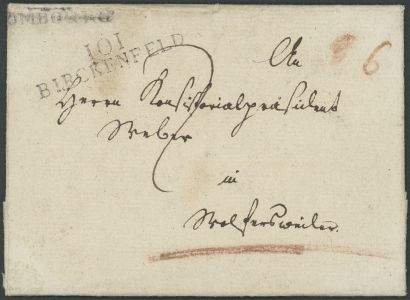 101
BIRCKENFELD
An
6
Herrn Konsistorialpräsident
Weber
2
in
Wolfersweiler.